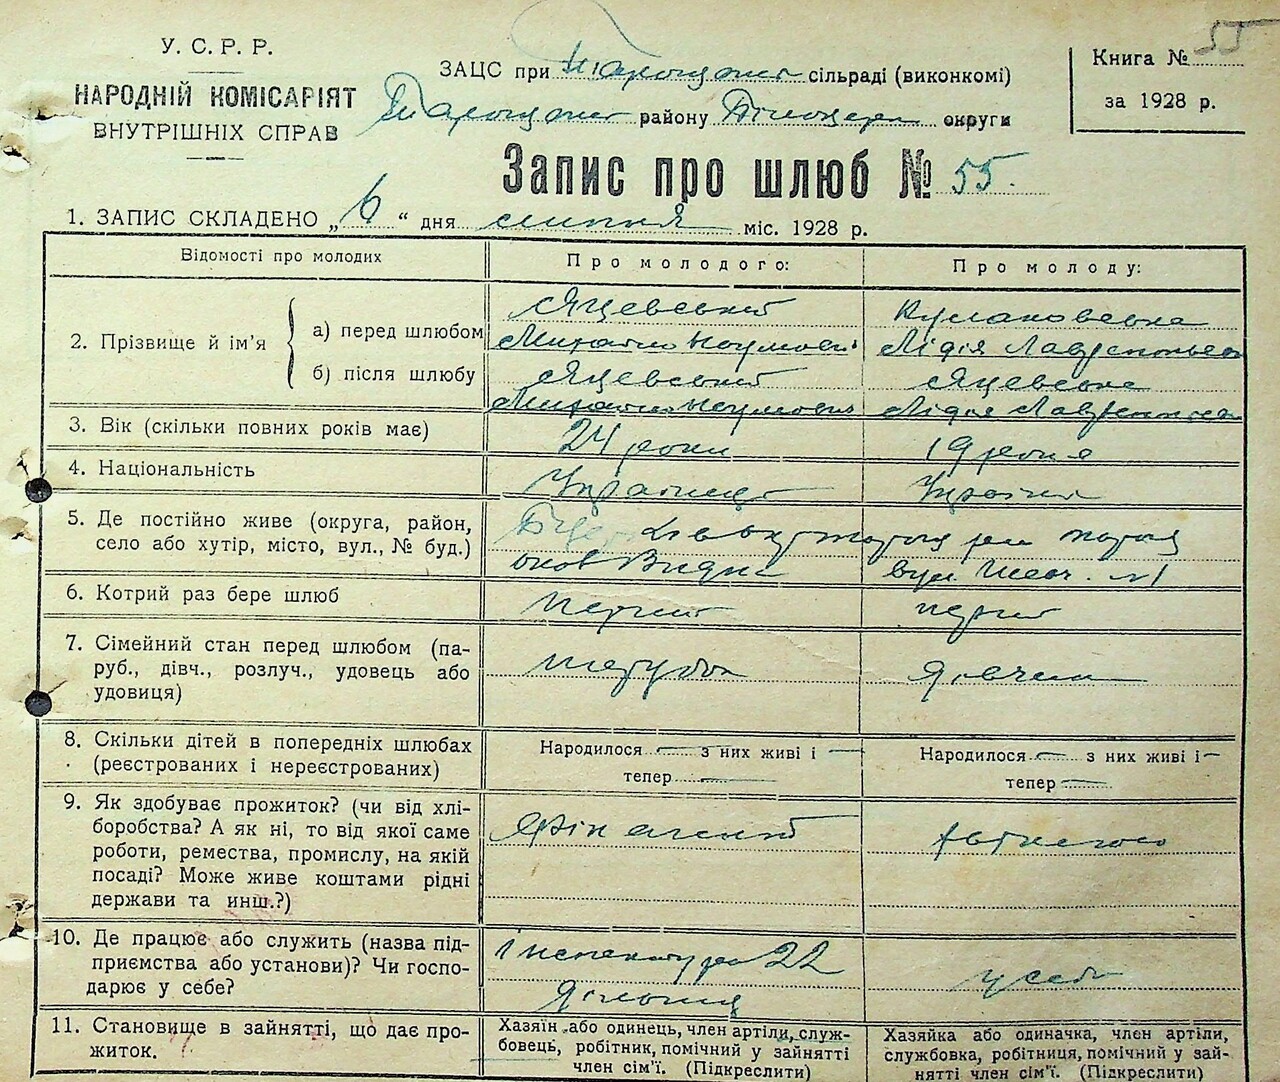 У. С. Р. Р.
НАРОДНІЙ КОМІСАРІЯТ
ВНУТРІШНІХ СПРАВ
ЗАЦС при сільраді (виконкомі)
району округи
Книга № 55
за 1928 р.
Запис про шлюб № 55.
1. ЗАПИС СКЛАДЕНО „6“ дня липня міс. 1928 р.
Відомості про молодих
Про молодого:
Про молоду:
2. Прізвище й ім'я
а) перед шлюбом
б) після шлюбу
Яцевський
Михайло Наумович
Яцевський
Михайло Наумович
Лідія
Яцевська
Лідія
3. Вік (скільки повних років має)
24 роки
19 років
4. Національність
Українець
5. Де постійно живе (округа, район,
село або хутір, місто, вул., № буд.)
вул. Шевч. №1
6. Котрий раз бере шлюб
перший
перший
7. Сімейний стан перед шлюбом (па-
руб., дівч., розлуч., удовець або
удовиця)
парубок
дівчина
8. Скільки дітей в попередніх шлюбах
(реєстрованих і нереєстрованих)
Народилося — з них живі і —
тепер —
Народилося — з них живі і —
тепер —
9. Як здобуває прожиток? (чи від хлі-
боробства? А як ні, то від якої саме
роботи, ремества, промислу, на якій
посаді? Може живе коштами рідні
держави та инш.?)
Фін агент
10. Де працює або служить (назва під-
приємства або установи)? Чи госпо-
дарює у себе?
Інспектура 22
дільниця
у себе
11. Становище в зайнятті, що дає про-
житок.
Хазяїн або одинець, член артіли, служ-
бовець, робітник, помічний у зайнятті
член сім'ї. (Підкреслити)
Хазяйка або одиначка, член артіли,
службовка, робітниця, помічний у зай-
нятті член сім'ї. (Підкреслити)